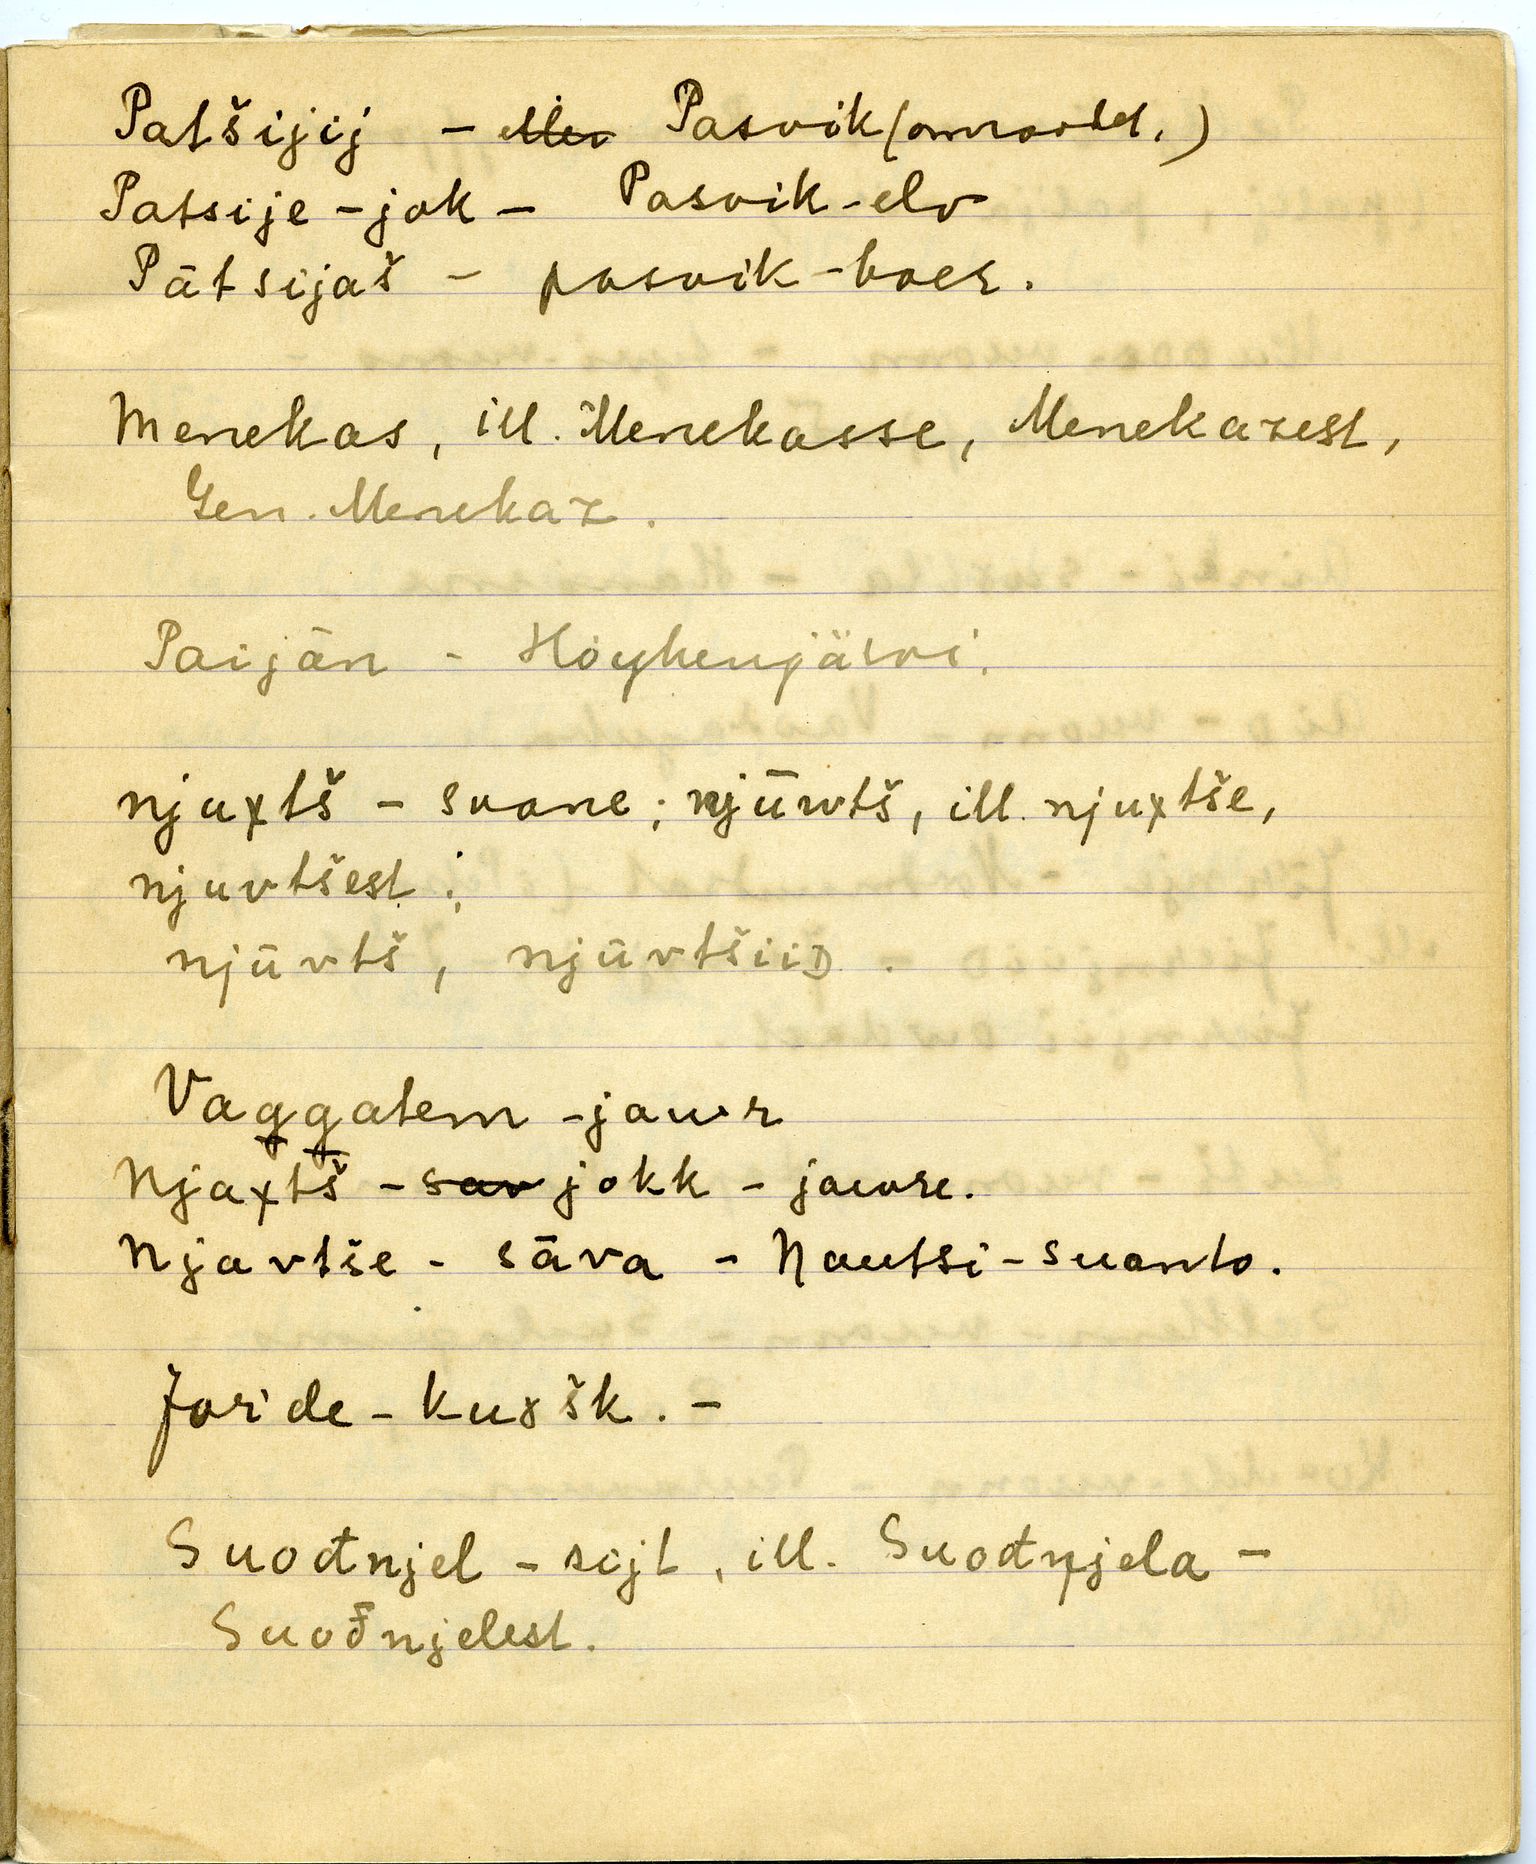 Patšijij - eller Pasvik (omraadet.)
Patsije-jok - Pasvik-elv
Pātsijaš - pasvik-boer.
Menekas, ill. Menekasse, Menekazest,
Gen. Menekaz.
Paijān - Höyhenjärvi.
njuxtš - svane; njūwtš, ill. njuxtše,
njuvtšest;
njūvtš, njūvtšiiD.
Vaggatem-jawr
Njaxtš - sav jokk - jawre.
Njavtše - sāva - Nautsi-suanto.
Joride-kuošk. -
Suođnjel - sijt, ill. Suođnjela -
Suođnjelest.